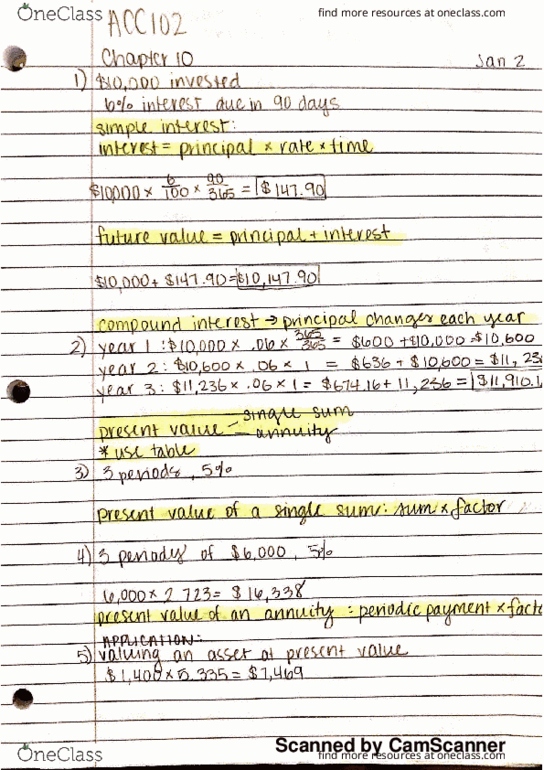 OneClass
find more resources at oneclass.com
ACC102
Chapter 10 Jan 2
1) $10,000 invested
6% interest due in 90 days
simple interest:
interest = principal × rate × time
$10000 × 6/100 × 90/365 = $147.90
future value = principal + interest
$10,000 + $147.90 = $10,147.90
compound interest → principal changes each year
2) year 1 : $10,000 × .06 × 365/365 = $600 + $10,000 = $10,600
year 2 : $10,600 × .06 × 1 = $636 + $10,600 = $11,23
year 3 : $11,236 × .06 × 1 = $674.16 + 11,236 = $11,910.1
single sum
present value - annuity
* use table
3) 3 periods, 5%
present value of a single sum: sum × factor
4) 3 periods of $6,000, 5%
6,000 × 2.723 = $16,338
present value of an annuity = periodic payment × fact
APPLICATION:
5) valuing an asset at present value
$1,400 × 5.335 = $7,469
Scanned by CamScanner
OneClass
find more resources at oneclass.com